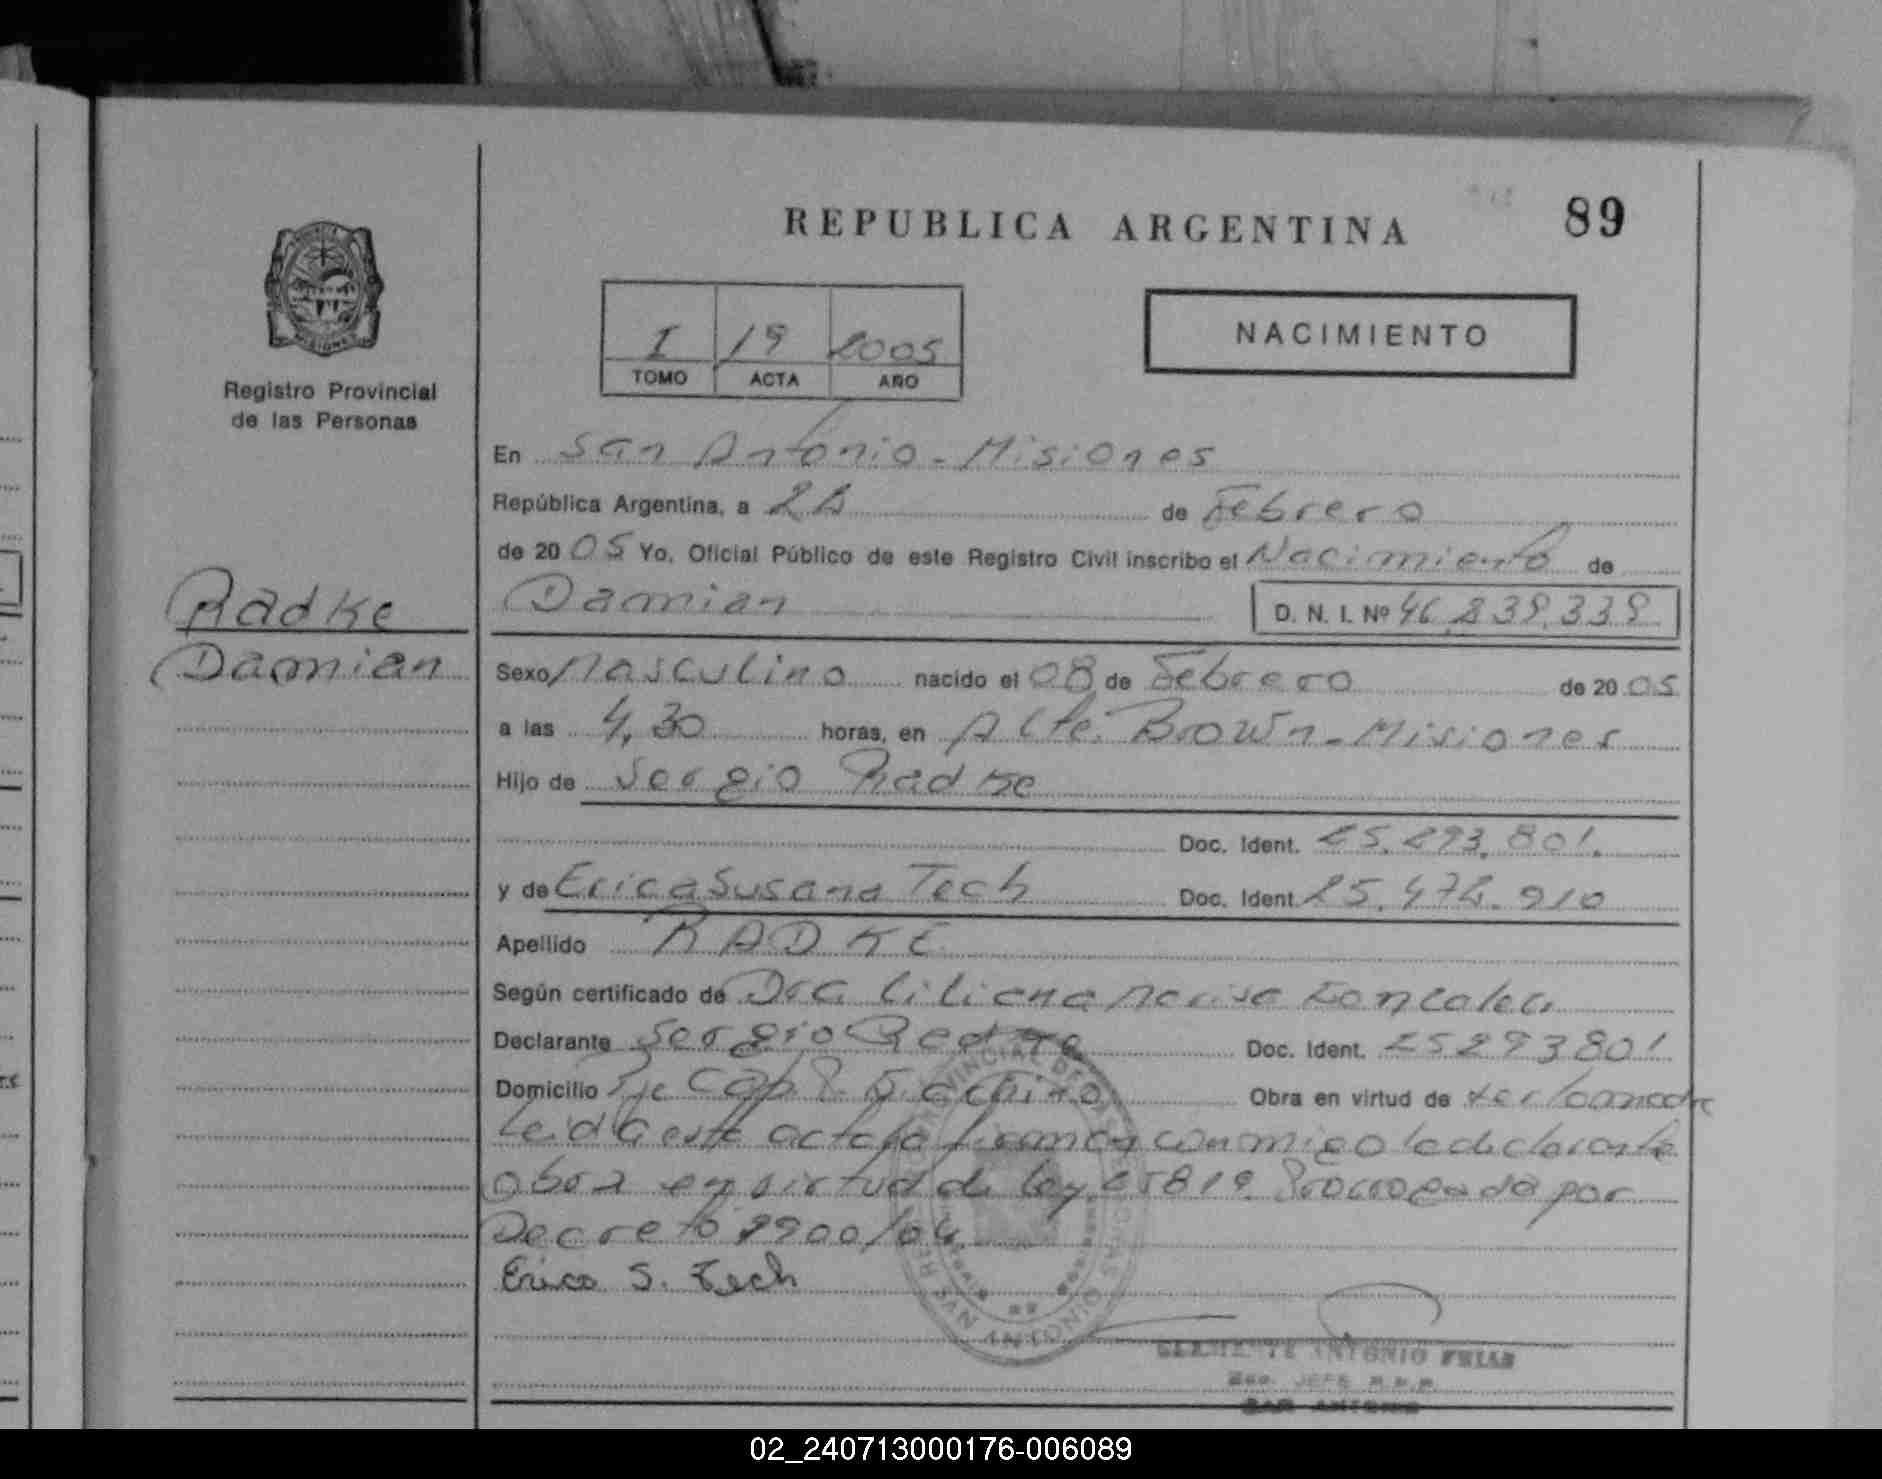 REPUBLICA ARGENTINA
89
I 19 2005
TOMO ACTA AÑO
NACIMIENTO
MISIONES
Registro Provincial
de las Personas
En San Antonio - Misiones
República Argentina, a de Febrero
de 20 05 Yo, Oficial Público de este Registro Civil inscribo el Nacimiento de
Radke
Damian
Damian D. N. I. Nº 46.839.339
Sexo Masculino nacido el 08 de Febrero de 20 05
a las 4,30 horas, en Alte. Brown - Misiones
Hijo de Sergio Radke
Doc. Ident. 25.293.801.
y de Erica Susana Tech Doc. Ident. 25.474.910
Apellido RADKE
Según certificado de Dra Liliana Marisa
Declarante Sergio Radke Doc. Ident. 25293801
Domicilio Obra en virtud de
Leida este acta la firman conmigo
obra en virtud de Ley 25819 Prorrogada por
Decreto /04
Erica S. Tech
SAN ANTONIO
CLEMENTE ANTONIO
JEFE R.P.P.
SAN ANTONIO
02_240713000176-006089